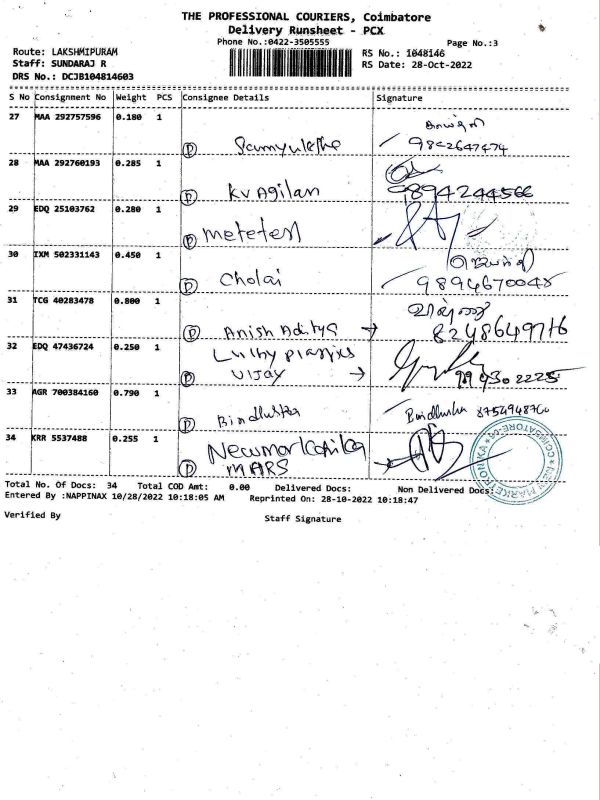 THE PROFESSIONAL COURIERS, Coimbatore
Delivery Runsheet - PCX
Phone No.:0422-3505555
Page No.:3
Route: LAKSHMIPURAM
RS No.: 1048146
Staff: SUNDARAJ R
RS Date: 28-Oct-2022
DRS No.: DCJB104814603
S No Consignment No Weight PCS Consignee Details Signature
27 MAA 292757596 0.180 1
D 9842647474
28 MAA 292760193 0.285 1
D KV Agilan 9894244566
29 EDQ 25103762 0.280 1
D
30 IXM 502331143 0.450 1
D Cholai 9894670048
31 TCG 40283478 0.800 1
D Anish Aditya → 8248649716
32 EDQ 47436724 0.250 1
D VIJAY →
33 AGR 700384160 0.790 1
D Bindhusha Bindhusha 8754948760
34 KRR 5537488 0.255 1
D MARS
Total No. Of Docs: 34 Total COD Amt: 0.00 Delivered Docs: Non Delivered Docs:
Entered By :NAPPINAX 10/28/2022 10:18:05 AM Reprinted On: 28-10-2022 10:18:47
Verified By
Staff Signature